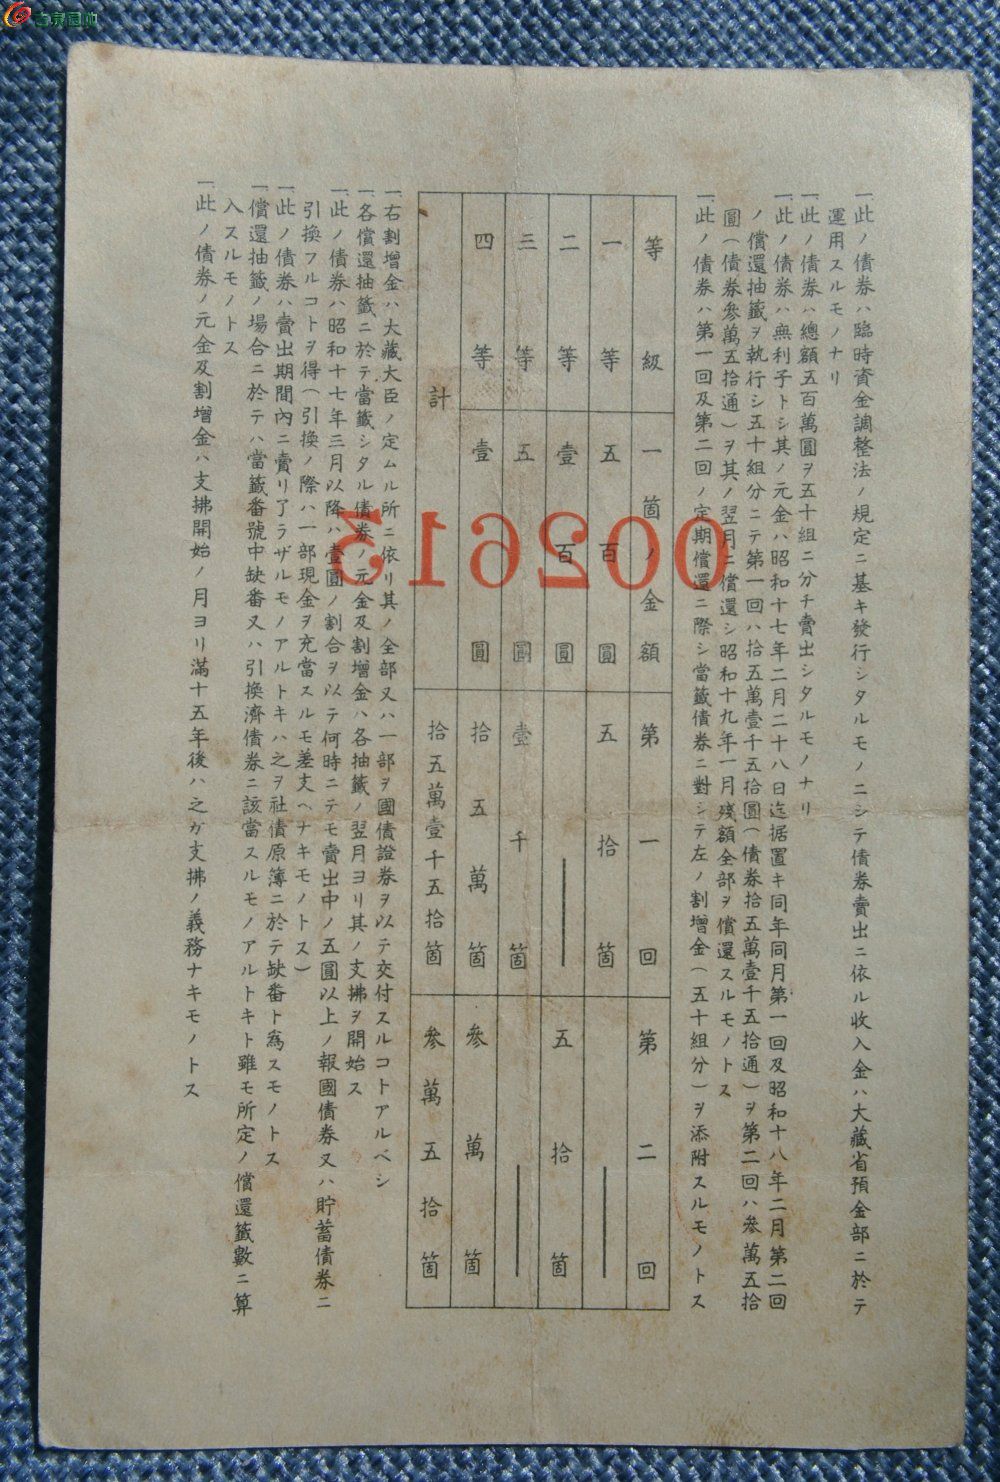 古泉園地
一、此ノ債券ハ臨時資金調整法ノ規定ニ基キ發行シタルモノニシテ債券賣出ニ依ル收入金ハ大藏省預金部ニ於テ
運用スルモノナリ
一、此ノ債券ハ總額五百萬圓ヲ五十組ニ分チ賣出シタルモノナリ
一、此ノ債券ハ無利子トシ其ノ元金ハ昭和十七年二月二十八日迄据置キ同年同月第一回及昭和十八年二月第二回
ノ償還抽籤ヲ執行シ五十組分ニテ第一回ハ拾五萬壹千五拾圓(債券拾五萬壹千五拾通)ヲ第二回ハ參萬五拾
圓(債券參萬五拾通)ヲ其ノ翌月ニ償還シ昭和十九年一月殘額全部ヲ償還スルモノトス
一、此ノ債券ハ第一回及第二回ノ定期償還ニ際シ當籤債券ニ對シテ左ノ割增金(五十組分)ヲ添附スルモノトス
等級 一箇ノ金額 第一回 第二回
一等 五百圓 五拾箇 ——
二等 壹百圓 —— 五拾箇
三等 五圓 壹千箇 ——
四等 壹圓 拾五萬箇 參萬箇
計 拾五萬壹千五拾箇 參萬五拾箇
002613
一、右割增金ハ大藏大臣ノ定ムル所ニ依リ其ノ全部又ハ一部ヲ國債證券ヲ以テ交付スルコトアルベシ
一、各償還抽籤ニ於テ當籤シタル債券ノ元金及割增金ハ各抽籤ノ翌月ヨリ其ノ支拂ヲ開始ス
一、此ノ債券ハ昭和十七年三月以降ハ壹圓ノ割合ヲ以テ何時ニテモ賣出中ノ五圓以上ノ報國債券又ハ貯蓄債券ニ
引換フルコトヲ得(引換ノ際ハ一部現金ヲ充當スルモ差支ヘナキモノトス)
一、此ノ債券ハ賣出期間內ニ賣リ了ラザルモノアルトキハ之ヲ社債原簿ニ於テ缺番ト爲スモノトス
一、償還抽籤ノ場合ニ於テハ當籤番號中缺番又ハ引換濟債券ニ該當スルモノアルトキト雖モ所定ノ償還籤數ニ算
入スルモノトス
一、此ノ債券ノ元金及割增金ハ支拂開始ノ月ヨリ滿十五年後ハ之ガ支拂ノ義務ナキモノトス